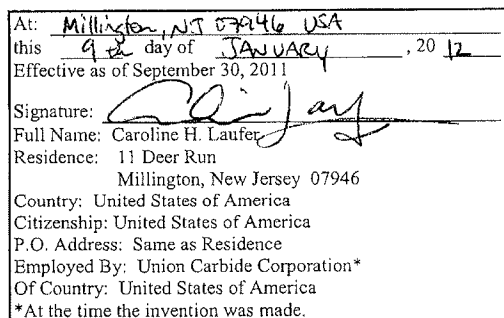 At: Millington, NJ 07946 USA
this 9th day of JANUARY, 20 12
Effective as of September 30, 2011
Signature:
Full Name: Caroline H. Laufer
Residence: 11 Deer Run
Millington, New Jersey 07946
Country: United States of America
Citizenship: United States of America
P.O. Address: Same as Residence
Employed By: Union Carbide Corporation*
Of Country: United States of America
*At the time the invention was made.